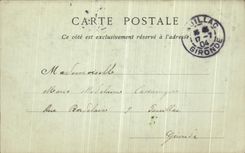 CARTE POSTALE
Ce côté est exclusivement réservé à l'adresse
PAUILLAC
17-7
04
GIRONDE
Mademoiselle
Marie Madeleine
Rue
Pauillac
Gironde